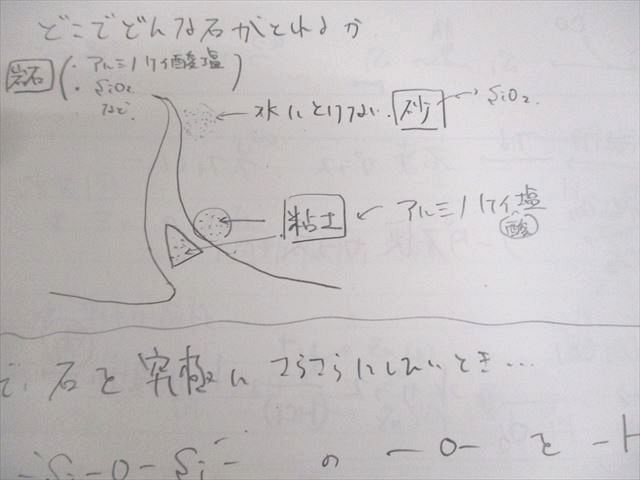 どこでどんな石がとれるか
岩石 (・アルミノケイ酸塩
・SiO2
など)
← 水にとけない 砂 → SiO2.
← 粘土 ← アルミノケイ塩
酸
で、石を究極にさらさらにしたいとき…
-Si-O-Si- の -O- を -H